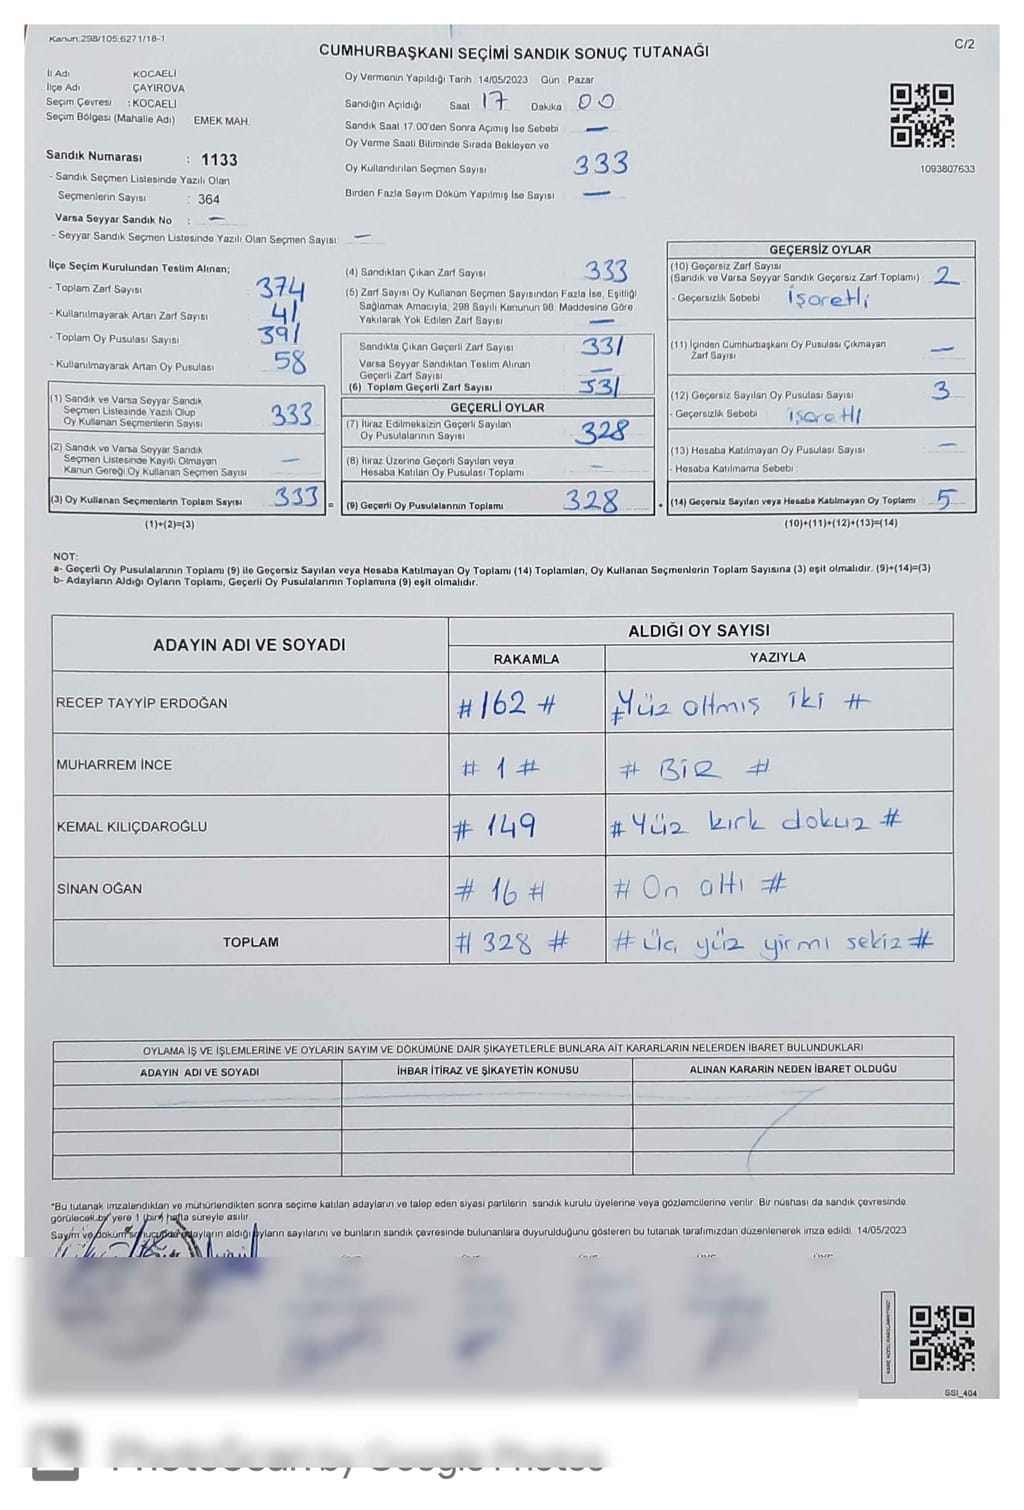 Kanun:298/105,6271/18-1
CUMHURBAŞKANI SEÇİMİ SANDIK SONUÇ TUTANAĞI
C/2
İl Adı KOCAELİ
İlçe Adı ÇAYIROVA
Seçim Çevresi : KOCAELİ
Seçim Bölgesi (Mahalle Adı) EMEK MAH.
Sandık Numarası : 1133
- Sandık Seçmen Listesinde Yazılı Olan
Seçmenlerin Sayısı : 364
Varsa Seyyar Sandık No : —
- Seyyar Sandık Seçmen Listesinde Yazılı Olan Seçmen Sayısı: —
Oy Vermenin Yapıldığı Tarih : 14/05/2023 Gün : Pazar
Sandığın Açıldığı Saat 17 Dakika : 00
Sandık Saat 17:00'den Sonra Açımış İse Sebebi —
Oy Verme Saati Bitiminde Sırada Bekleyen ve
Oy Kullandırılan Seçmen Sayısı 333
Birden Fazla Sayım Döküm Yapılmış İse Sayısı —
1093807633
İlçe Seçim Kurulundan Teslim Alınan;
- Toplam Zarf Sayısı 374
- Kullanılmayarak Artan Zarf Sayısı 41
- Toplam Oy Pusulası Sayısı 391
- Kullanılmayarak Artan Oy Pusulası 58
(1) Sandık ve Varsa Seyyar Sandık
Seçmen Listesinde Yazılı Olup
Oy Kullanan Seçmenlerin Sayısı 333
(2) Sandık ve Varsa Seyyar Sandık
Seçmen Listesinde Kayıtlı Olmayan
Kanun Gereği Oy Kullanan Seçmen Sayısı —
(3) Oy Kullanan Seçmenlerin Toplam Sayısı 333 =
(1)+(2)=(3)
(4) Sandıktan Çıkan Zarf Sayısı 333
(5) Zarf Sayısı Oy Kullanan Seçmen Sayısından Fazla İse, Eşitliği
Sağlamak Amacıyla, 298 Sayılı Kanunun 98. Maddesine Göre
Yakılarak Yok Edilen Zarf Sayısı —
Sandıkta Çıkan Geçerli Zarf Sayısı 331
Varsa Seyyar Sandıktan Teslim Alınan
Geçerli Zarf Sayısı —
(6) Toplam Geçerli Zarf Sayısı 331
GEÇERLİ OYLAR
(7) İtiraz Edilmeksizin Geçerli Sayılan
Oy Pusulalarının Sayısı 328
(8) İtiraz Üzerine Geçerli Sayılan veya
Hesaba Katılan Oy Pusulası Toplamı —
(9) Geçerli Oy Pusulalarının Toplamı 328 +
GEÇERSİZ OYLAR
(10) Geçersiz Zarf Sayısı
(Sandık ve Varsa Seyyar Sandık Geçersiz Zarf Toplamı) 2
- Geçersizlik Sebebi işaretli
(11) İçinden Cumhurbaşkanı Oy Pusulası Çıkmayan
Zarf Sayısı —
(12) Geçersiz Sayılan Oy Pusulası Sayısı 3
- Geçersizlik Sebebi işaretli
(13) Hesaba Katılmayan Oy Pusulası Sayısı —
- Hesaba Katılmama Sebebi :
(14) Geçersiz Sayılan veya Hesaba Katılmayan Oy Toplamı 5
(10)+(11)+(12)+(13)=(14)
NOT:
a- Geçerli Oy Pusulalarının Toplamı (9) ile Geçersiz Sayılan veya Hesaba Katılmayan Oy Toplamı (14) Toplamları, Oy Kullanan Seçmenlerin Toplam Sayısına (3) eşit olmalıdır. (9)+(14)=(3)
b- Adayların Aldığı Oyların Toplamı, Geçerli Oy Pusulalarının Toplamına (9) eşit olmalıdır.
ADAYIN ADI VE SOYADI ALDIĞI OY SAYISI
RAKAMLA YAZIYLA
RECEP TAYYİP ERDOĞAN #162# #Yüz altmış iki #
MUHARREM İNCE # 1 # # BİR #
KEMAL KILIÇDAROĞLU # 149 #Yüz kırk dokuz #
SİNAN OĞAN # 16 # # On altı #
TOPLAM # 328 # # üç yüz yirmi sekiz #
OYLAMA İŞ VE İŞLEMLERİNE VE OYLARIN SAYIM VE DÖKÜMÜNE DAİR ŞİKAYETLERLE BUNLARA AİT KARARLARIN NELERDEN İBARET BULUNDUKLARI
ADAYIN ADI VE SOYADI İHBAR İTİRAZ VE ŞİKAYETİN KONUSU ALINAN KARARIN NEDEN İBARET OLDUĞU
*Bu tutanak imzalandıktan ve mühürlendikten sonra seçime katılan adayların ve talep eden siyasi partilerin sandık kurulu üyelerine veya gözlemcilerine verilir. Bir nüshası da sandık çevresinde
görülecek bir yere 1 (bir) hafta süreyle asılır.
Sayım ve döküm sonucunda adayların aldığı oyların sayılarını ve bunların sandık çevresinde bulunanlara duyurulduğunu gösteren bu tutanak tarafımızdan düzenlenerek imza edildi. 14/05/2023
SSI_404
PhotoScan by Google Photos